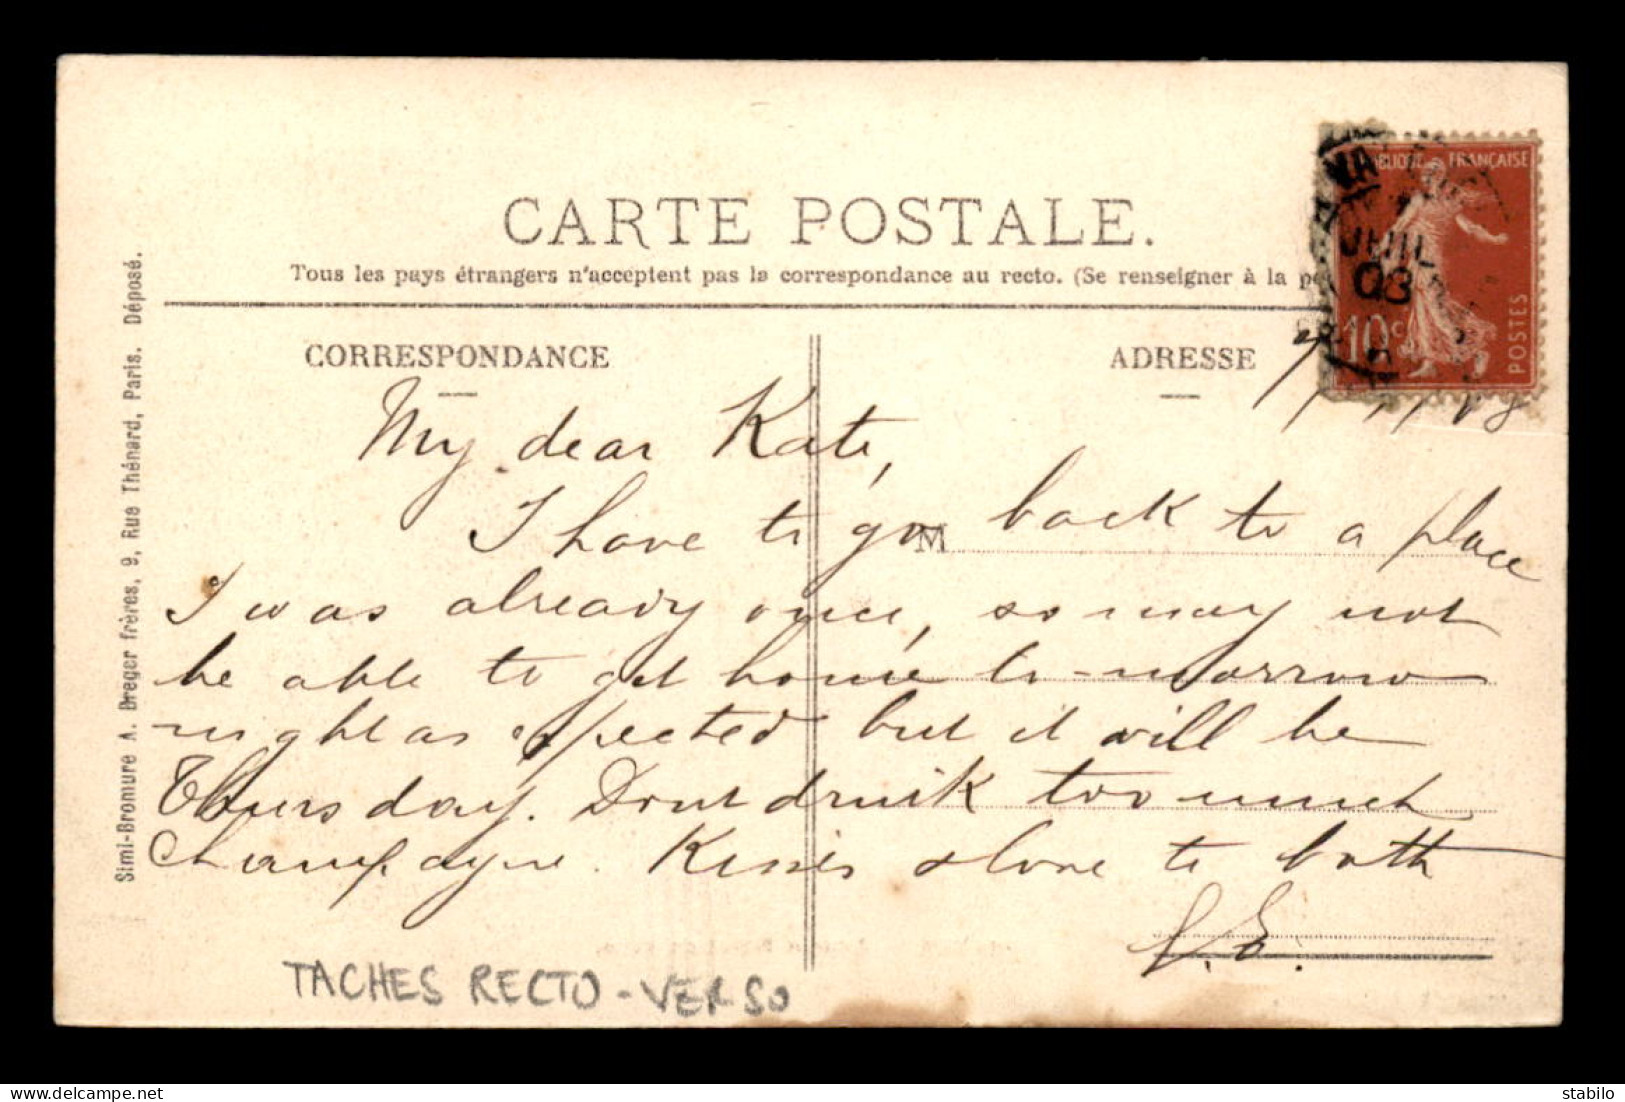 CARTE POSTALE.
Tous les pays étrangers n'acceptent pas la correspondance au recto. (Se renseigner à la
CORRESPONDANCE
ADRESSE
RÉPUBLIQUE FRANÇAISE
10c
POSTES
JUIL
08
My dear Kate,
I have to go back to a place
M
I was already once, so may not
be able to get home to-morrow
night as expected but it will be
Thursday. Dont drink too much
champagne. Kisses & love to both
Simi-Bromure A. Breger frères, 9, Rue Thénard, Paris. Déposé.
TACHES RECTO - VERSO
stabilo